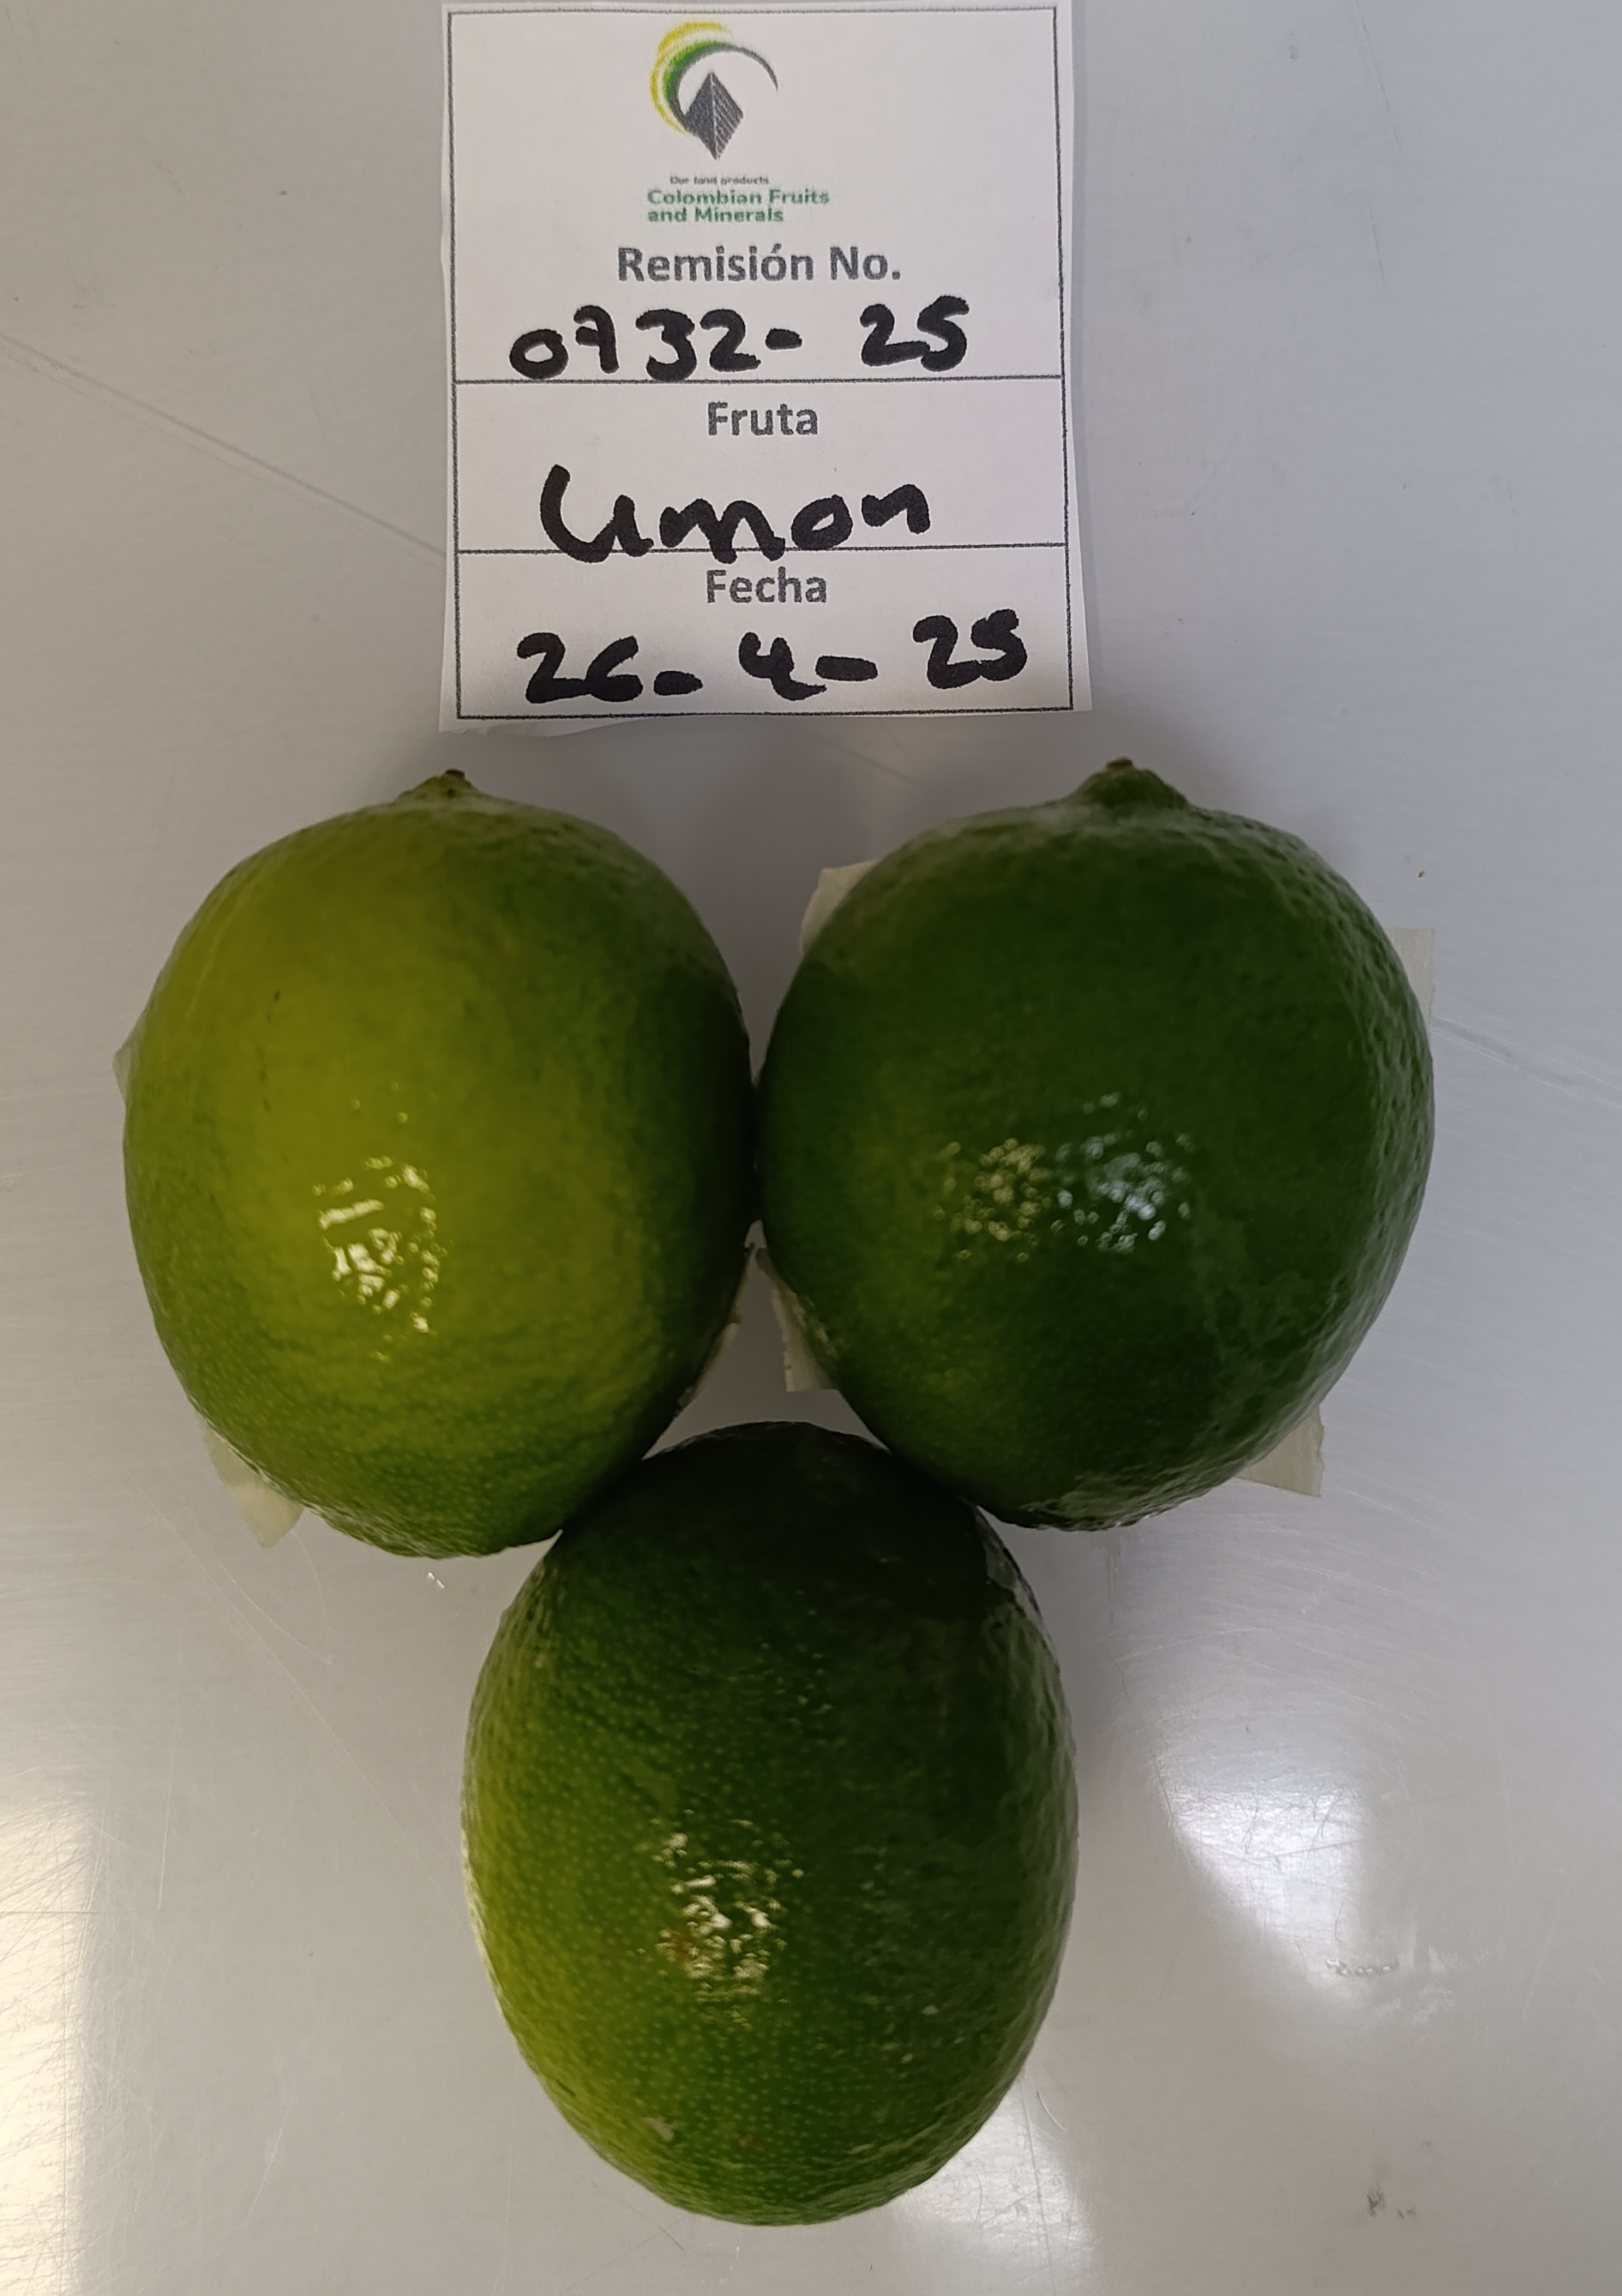 Our land products
Colombian Fruits
and Minerals
Remisión No.
0732- 25
Fruta
Limon
Fecha
26- 4- 25